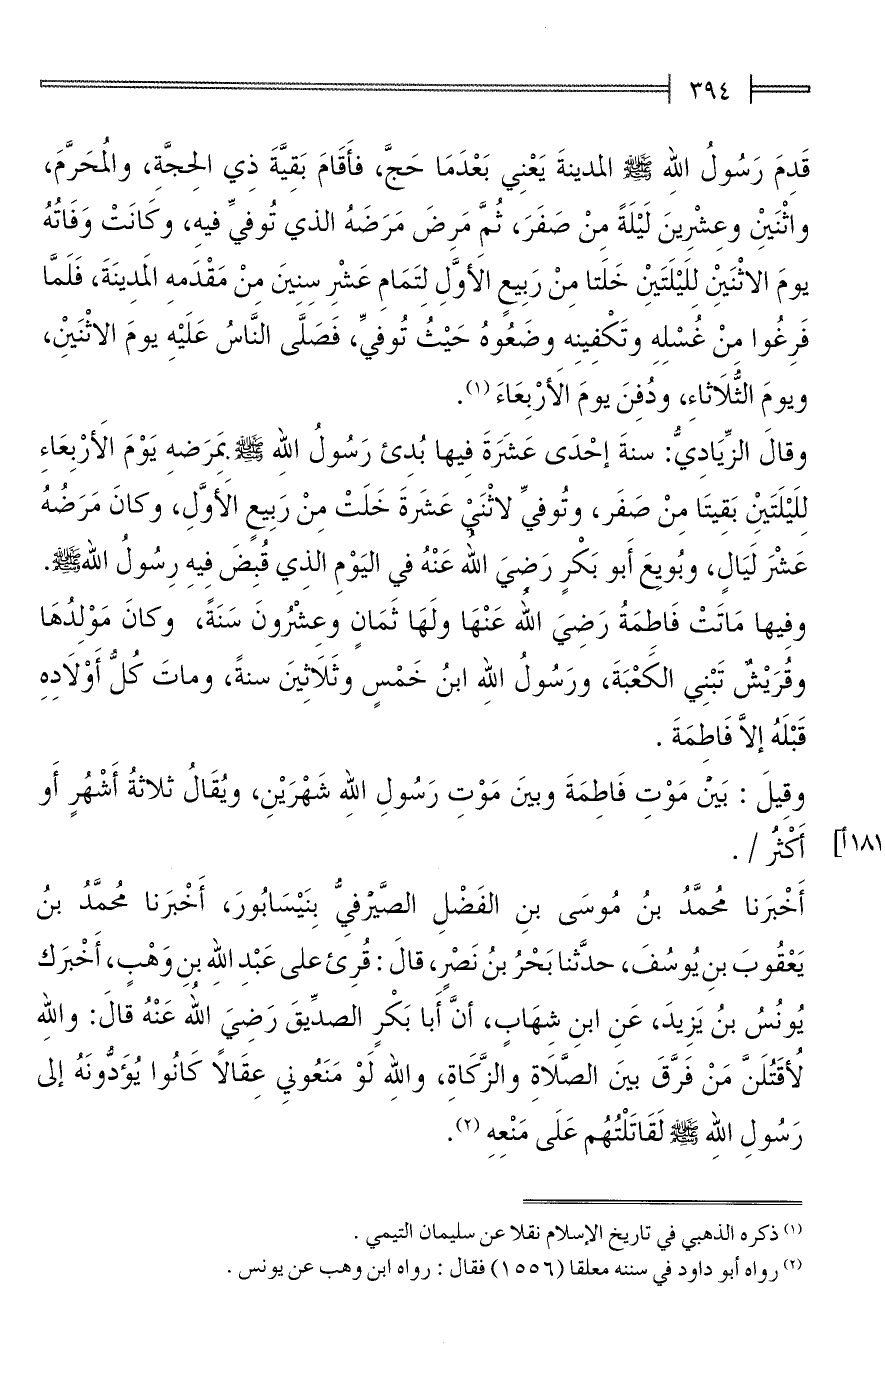 ٣٩٤
قَدِمَ رَسُولُ اللهِ ﷺ المدينةَ يَعْنِي بَعْدَمَا حَجَّ، فأَقَامَ بَقِيَّةَ ذِي الحِجَّةِ، والمُحَرَّمَ،
واثْنَيْنِ وعِشْرِينَ لَيْلَةً مِنْ صَفَرَ، ثُمَّ مَرِضَ مَرَضَهُ الذي تُوفيِّ فيهِ، وكَانَتْ وَفَاتُهُ
يومَ الاثْنَيْنِ لِلَيْلَتَيْنِ خَلَتا مِنْ رَبِيعِ الأَوَّلِ لِتَمَامِ عَشْرِ سِنِينَ مِنْ مَقْدَمِهِ المَدِينَةَ، فَلَمَّا
فَرِغُوا مِنْ غُسْلِهِ وتَكْفِينِهِ وضَعُوهُ حَيْثُ تُوفيِّ، فَصَلَّى النَّاسُ عَلَيْهِ يومَ الاثْنَيْنِ،
ويومَ الثُّلَاثاءِ، ودُفِنَ يومَ الأَرْبِعَاءَ (١).
وقالَ الزِّيَادِيُّ: سنةَ إحْدَى عَشَرَةَ فِيها بُدئ رَسُولُ اللهِ ﷺ بمَرَضِهِ يَوْمَ الأَرْبِعَاءِ
لِلَيْلَتَيْنِ بَقِيتَا مِنْ صَفَرِ، وتُوفيِّ لاثْنَيْ عَشَرَةَ خَلَتْ مِنْ رَبِيعِ الأَوَّلِ، وكانَ مَرَضُهُ
عَشْرَ لَيَالٍ، وبُويِعَ أبو بَكْرٍ رَضِيَ اللهُ عَنْهُ في اليَوْمِ الذي قُبِضَ فيهِ رسُولُ اللهِ ﷺ.
وفيها مَاتَتْ فَاطِمَةُ رَضِيَ اللهُ عَنْهَا ولَها ثَمَانٍ وعِشْرُونَ سَنَةً، وكانَ مَوْلِدُهَا
وقُرَيْشٌ تَبْنِي الكَعْبَةَ، ورَسُولُ اللهِ ابنُ خَمْسٍ وثَلَاثِينَ سنةً، وماتَ كُلُّ أَوْلَادِهِ
قَبْلَهُ إلاَّ فَاطِمَةَ .
وقِيلَ : بَيْنَ مَوْتِ فَاطِمَةَ وبينَ مَوْتِ رَسُولِ اللهِ شَهْرَيْنِ، ويُقَالُ ثلاثةُ أَشْهُرٍ أو
أَكْثَرُ / . [١٨١أ]
أَخْبَرَنا مُحمَّدُ بنُ مُوسَى بنِ الفَضْلِ الصَّيْرَفيُّ بِنَيْسَابُورَ، أَخْبَرَنا مُحمَّدُ بنُ
يَعْقُوبَ بنِ يُوسُفَ، حدثَّنا بَحْرُ بنُ نَصْرٍ، قالَ : قُرِئ على عَبْدِ اللهِ بنِ وَهْبٍ، أَخْبَرَكَ
يُونُسُ بنُ يَزِيدَ، عَنِ ابنِ شِهَابٍ، أنَّ أبا بَكْرٍ الصدِّيقَ رَضِيَ اللهُ عَنْهُ قالَ: واللهِ
لأَقتُلَنَّ مَنْ فَرَّقَ بينَ الصَّلَاةِ والزَّكَاةِ، واللهِ لَوْ مَنَعُوني عِقَالاً كَانُوا يُؤَدُّونَهُ إلى
رَسُولِ اللهِ ﷺ لَقَاتَلْتُهُم عَلَى مَنْعِهِ (٢).
(١) ذكره الذهبي في تاريخ الإسلام نقلا عن سليمان التيمي .
(٢) رواه أبو داود في سننه معلقا (١٥٥٦) فقال : رواه ابن وهب عن يونس .